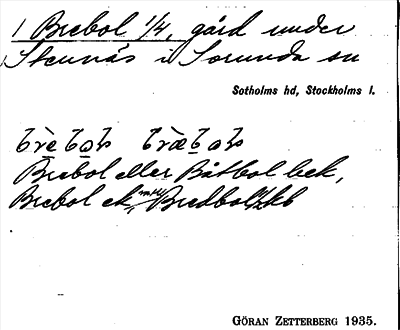 1 Brebol 1/4, gård under
Stennäs i Sorunda sn
Sotholms hd, Stockholms l.
Brebol eller Båtbol bek,
Brebol ek, Bredbol
GÖRAN ZETTERBERG 1935.